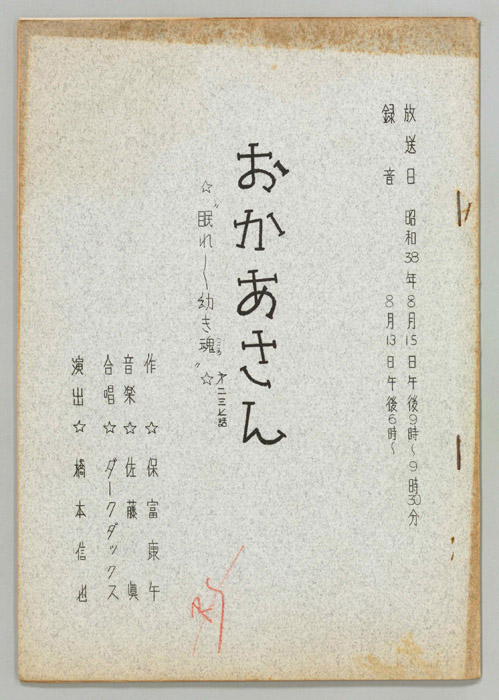 放送日 昭和38年8月15日午後9時〜9時30分
録音 8月13日午後6時〜
おかあさん
☆〝眠れ〳〵幼き魂〟☆ 才二三七話
こころ
作 ☆ 保富康午
音楽 ☆ 佐藤眞
合唱 ☆ ダークダックス
演出 ☆ 橋本信也